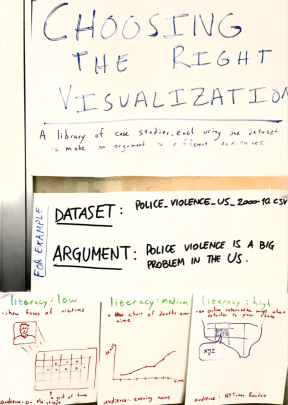 CHOOSING
THE RIGHT
VISUALIZATION
A library of case studies, each using one dataset
to make an argument to different audiences.
FOR EXAMPLE
DATASET: POLICE_VIOLENCE_US_2000-12.CSV
ARGUMENT: POLICE VIOLENCE IS A BIG
PROBLEM IN THE US.
literacy: low
-show faces of victims
a grid of
audience: on the street
literacy: medium
chart of deaths over
time
audience: evening news
literacy: high
an online interactive map
to your state
XYZ
audience: NYTimes Reader